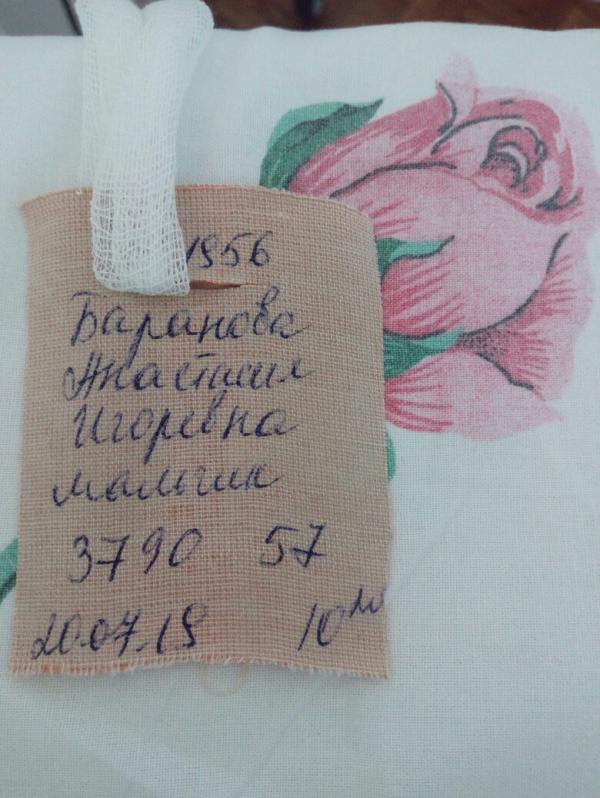 1956
Баранова
Анастасия
Игоревна
мальчик
3790 57
20.07.19 10²⁰